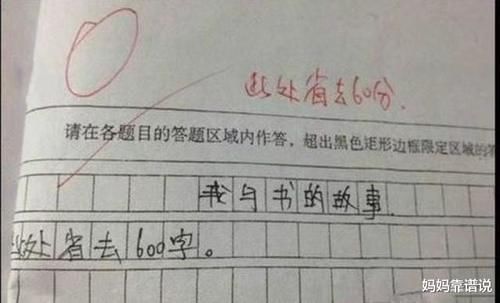 此处省去60分.
请在各题目的答题区域内作答，超出黑色矩形边框限定区域的
我与书的故事.
此处省去600字。
妈妈靠谱说